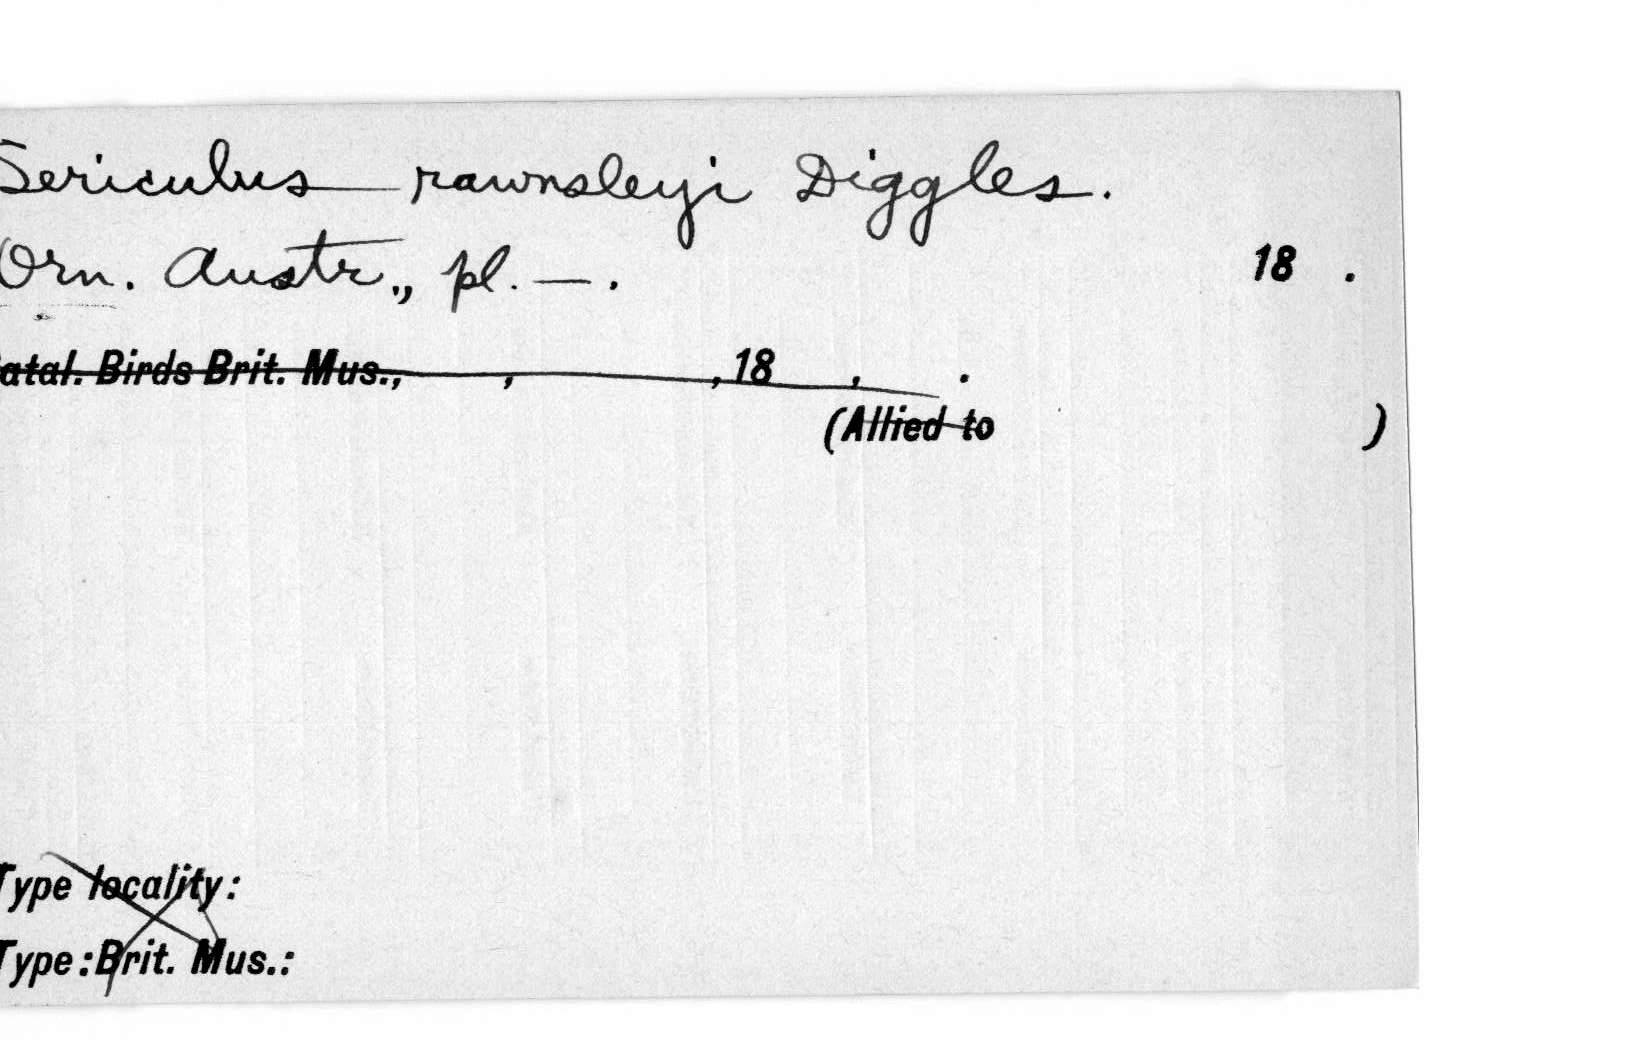 Sericulus rawnsleyi Diggles.
Orn. Austr., pl. — . 18 .
Catal. Birds Brit. Mus., , , 18 , .
(Allied to )
Type locality:
Type: Brit. Mus.: